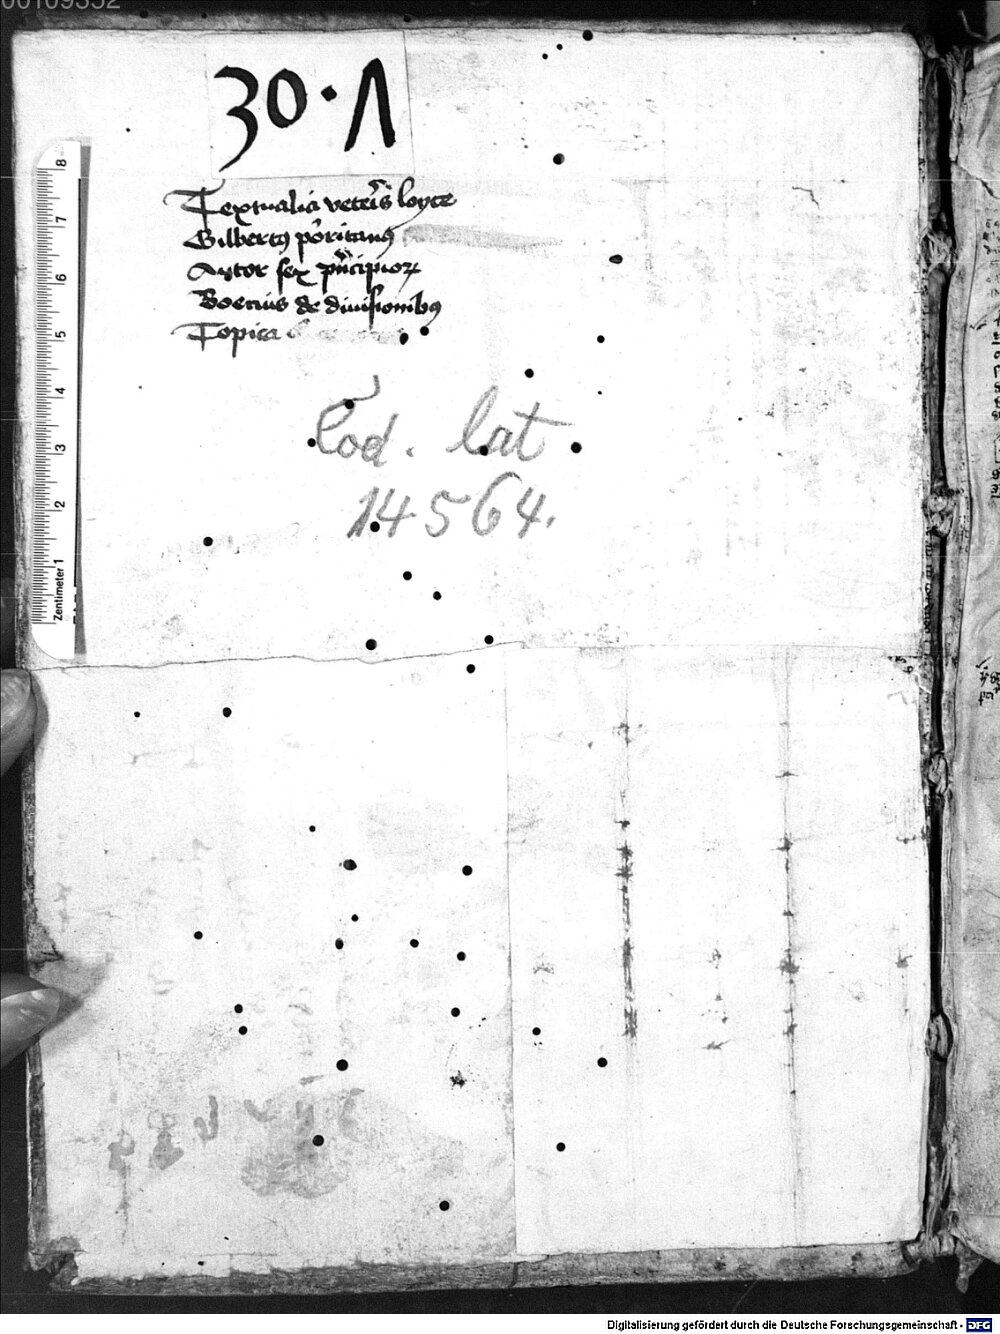 00109352
30·Λ
Textualia veteris loyce
Gilbertus porritanus
Autor sex principiorum
Boecius de divisionibus
Topica
Cod. lat
14564.
Zentimeter 1 2 3 4 5 6 7 8
Digitalisierung gefördert durch die Deutsche Forschungsgemeinschaft - DFG